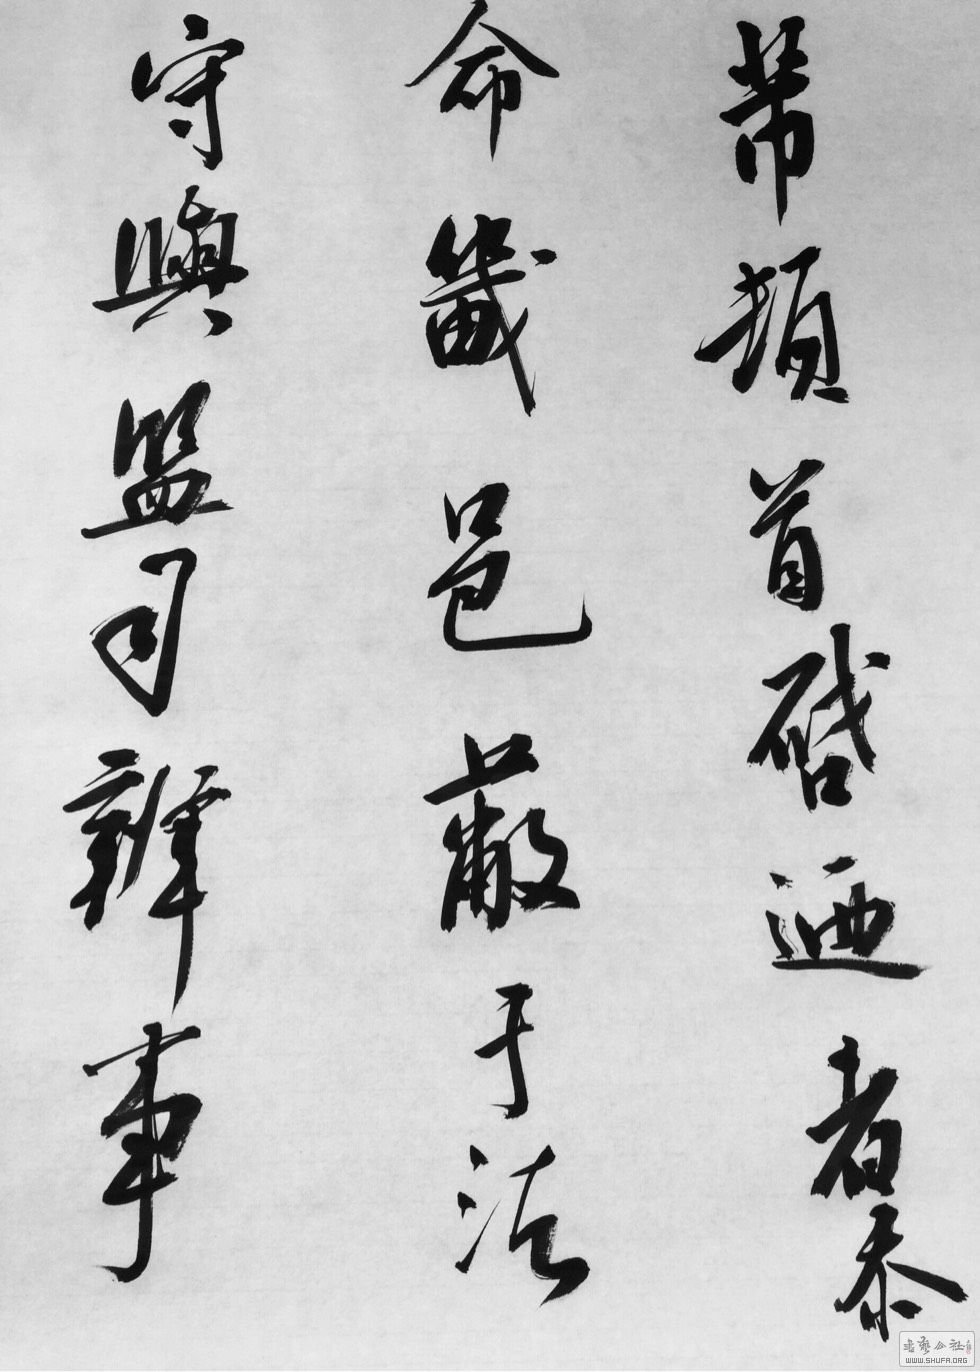 芾頓首啓迺者忝
命畿邑蔽于法
守與監司辨事
書藝公社
WWW.SHUFA.ORG